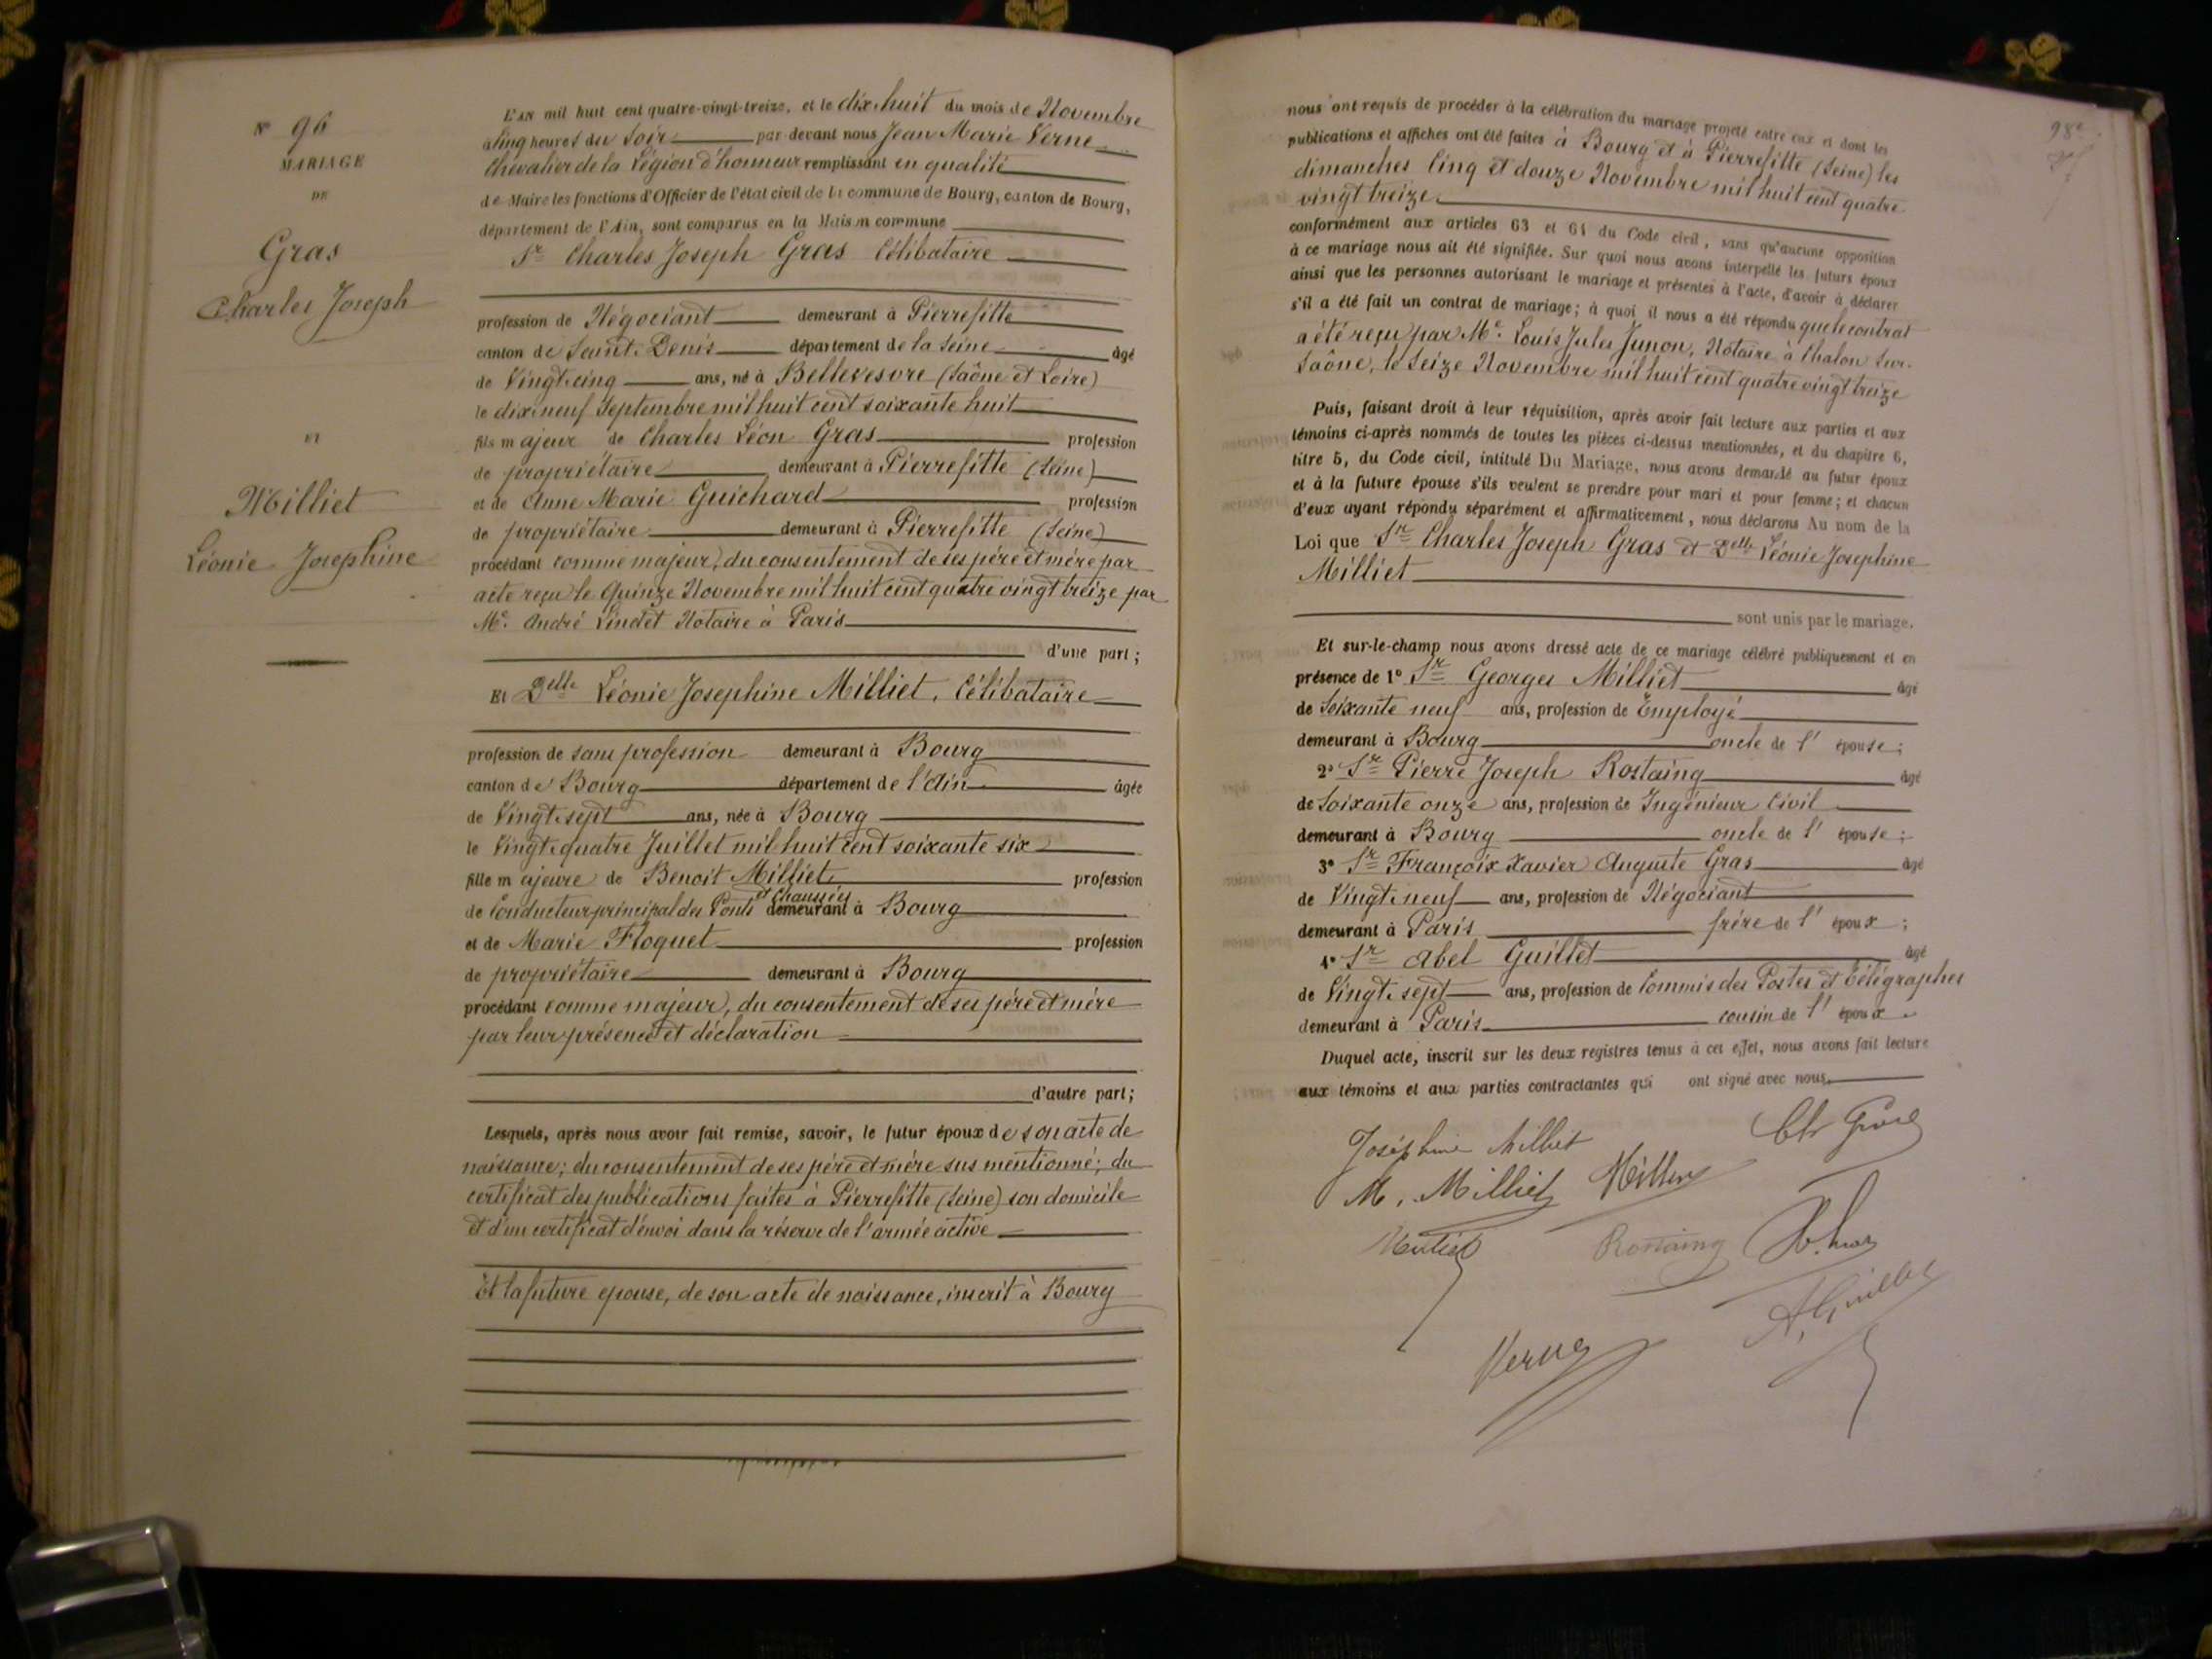 N° 96
MARIAGE
DE
Gras
Charles Joseph
ET
Milliet
Léonie Josephine
L'AN mil huit cent quatre-vingt-treize, et le dix huit du mois de Novembre
à Cinq heures du Soir par-devant nous Jean Marie Verne
Chevalier de la Légion d'honneur remplissant en qualité
de Maire les fonctions d'Officier de l'état civil de la commune de Bourg, canton de Bourg,
département de l'Ain, sont comparus en la Maison commune
Sr Charles Joseph Gras Célibataire
profession de Négociant demeurant à Pierrefitte
canton de Saint-Denis département de la Seine âgé
de Vingt-cinq ans, né à Bellevesvre (Saône et Loire)
le dix-neuf Septembre mil huit cent soixante huit
fils majeur de Charles Léon Gras profession
de propriétaire demeurant à Pierrefitte (Seine)
et de Anne Marie Guichard profession
de propriétaire demeurant à Pierrefitte (Seine)
procédant comme majeur, du consentement de ses père et mère par
acte reçu le Quinze Novembre mil huit cent quatre vingt treize par
Me. André Lindet Notaire à Paris
d'une part;
Et Delle Léonie Josephine Milliet, Célibataire
profession de sans profession demeurant à Bourg
canton de Bourg département de l'Ain âgée
de Vingt-sept ans, née à Bourg
le Vingt-quatre Juillet mil huit cent soixante six
fille majeure de Benoit Milliet profession
de Conducteur principal des Ponts et Chaussées demeurant à Bourg
et de Marie Floquet profession
de propriétaire demeurant à Bourg
procédant comme majeur, du consentement de ses père et mère
par leur présence et déclaration
d'autre part;
Lesquels, après nous avoir fait remise, savoir, le futur époux de son acte de
naissance; du consentement de ses père et mère sus mentionné; du
certificat des publications faites à Pierrefitte (Seine) son domicile
et d'un certificat d'envoi dans la réserve de l'armée active
Et la future epouse, de son acte de naissance, inscrit à Bourg
98e
nous ont requis de procéder à la célébration du mariage projeté entre eux et dont les
publications et affiches ont été faites à Bourg et à Pierrefitte (Seine) les
dimanches Cinq et douze Novembre mil huit cent quatre
vingt treize
conformément aux articles 63 et 64 du Code civil, sans qu'aucune opposition
à ce mariage nous ait été signifiée. Sur quoi nous avons interpellé les futurs époux
ainsi que les personnes autorisant le mariage et présentes à l'acte, d'avoir à déclarer
s'il a été fait un contrat de mariage; à quoi il nous a été répondu que le contrat
a été reçu par Me. Louis Jules Junon, Notaire à Chalon Sur-
Saône, le Seize Novembre mil huit cent quatre vingt treize
Puis, faisant droit à leur réquisition, après avoir fait lecture aux parties et aux
témoins ci-après nommés de toutes les pièces ci-dessus mentionnées, et du chapitre 6,
titre 5, du Code civil, intitulé Du Mariage, nous avons demandé au futur époux
et à la future épouse s'ils veulent se prendre pour mari et pour femme; et chacun
d'eux ayant répondu séparément et affirmativement, nous déclarons Au nom de la
Loi que Sr Charles Joseph Gras et Delle Léonie Josephine
Milliet
sont unis par le mariage.
Et sur-le-champ nous avons dressé acte de ce mariage célébré publiquement et en
présence de 1° Sr Georges Milliet âgé
de Soixante neuf ans, profession de Employé
demeurant à Bourg oncle de l'épouse;
2° Sr Pierre Joseph Rostaing âgé
de Soixante onze ans, profession de Ingénieur Civil
demeurant à Bourg oncle de l'épouse;
3° Sr François Xavier Auguste Gras âgé
de Vingt-neuf ans, profession de Négociant
demeurant à Paris frère de l'époux;
4° Sr Abel Guillet âgé
de Vingt-sept ans, profession de Commis des Postes et Télégraphes
demeurant à Paris cousin de l'époux.
Duquel acte, inscrit sur les deux registres tenus à cet effet, nous avons fait lecture
aux témoins et aux parties contractantes qui ont signé avec nous.
Joséphine Milliet Ch Gras
M. Milliet Milliet
Milliet Rostaing
A. Guillet
Verne